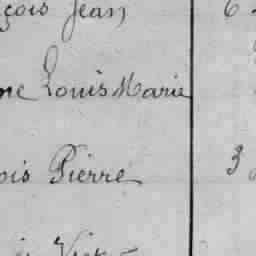 çois Jean 6
ne Louis Marie
ois Pierre 3